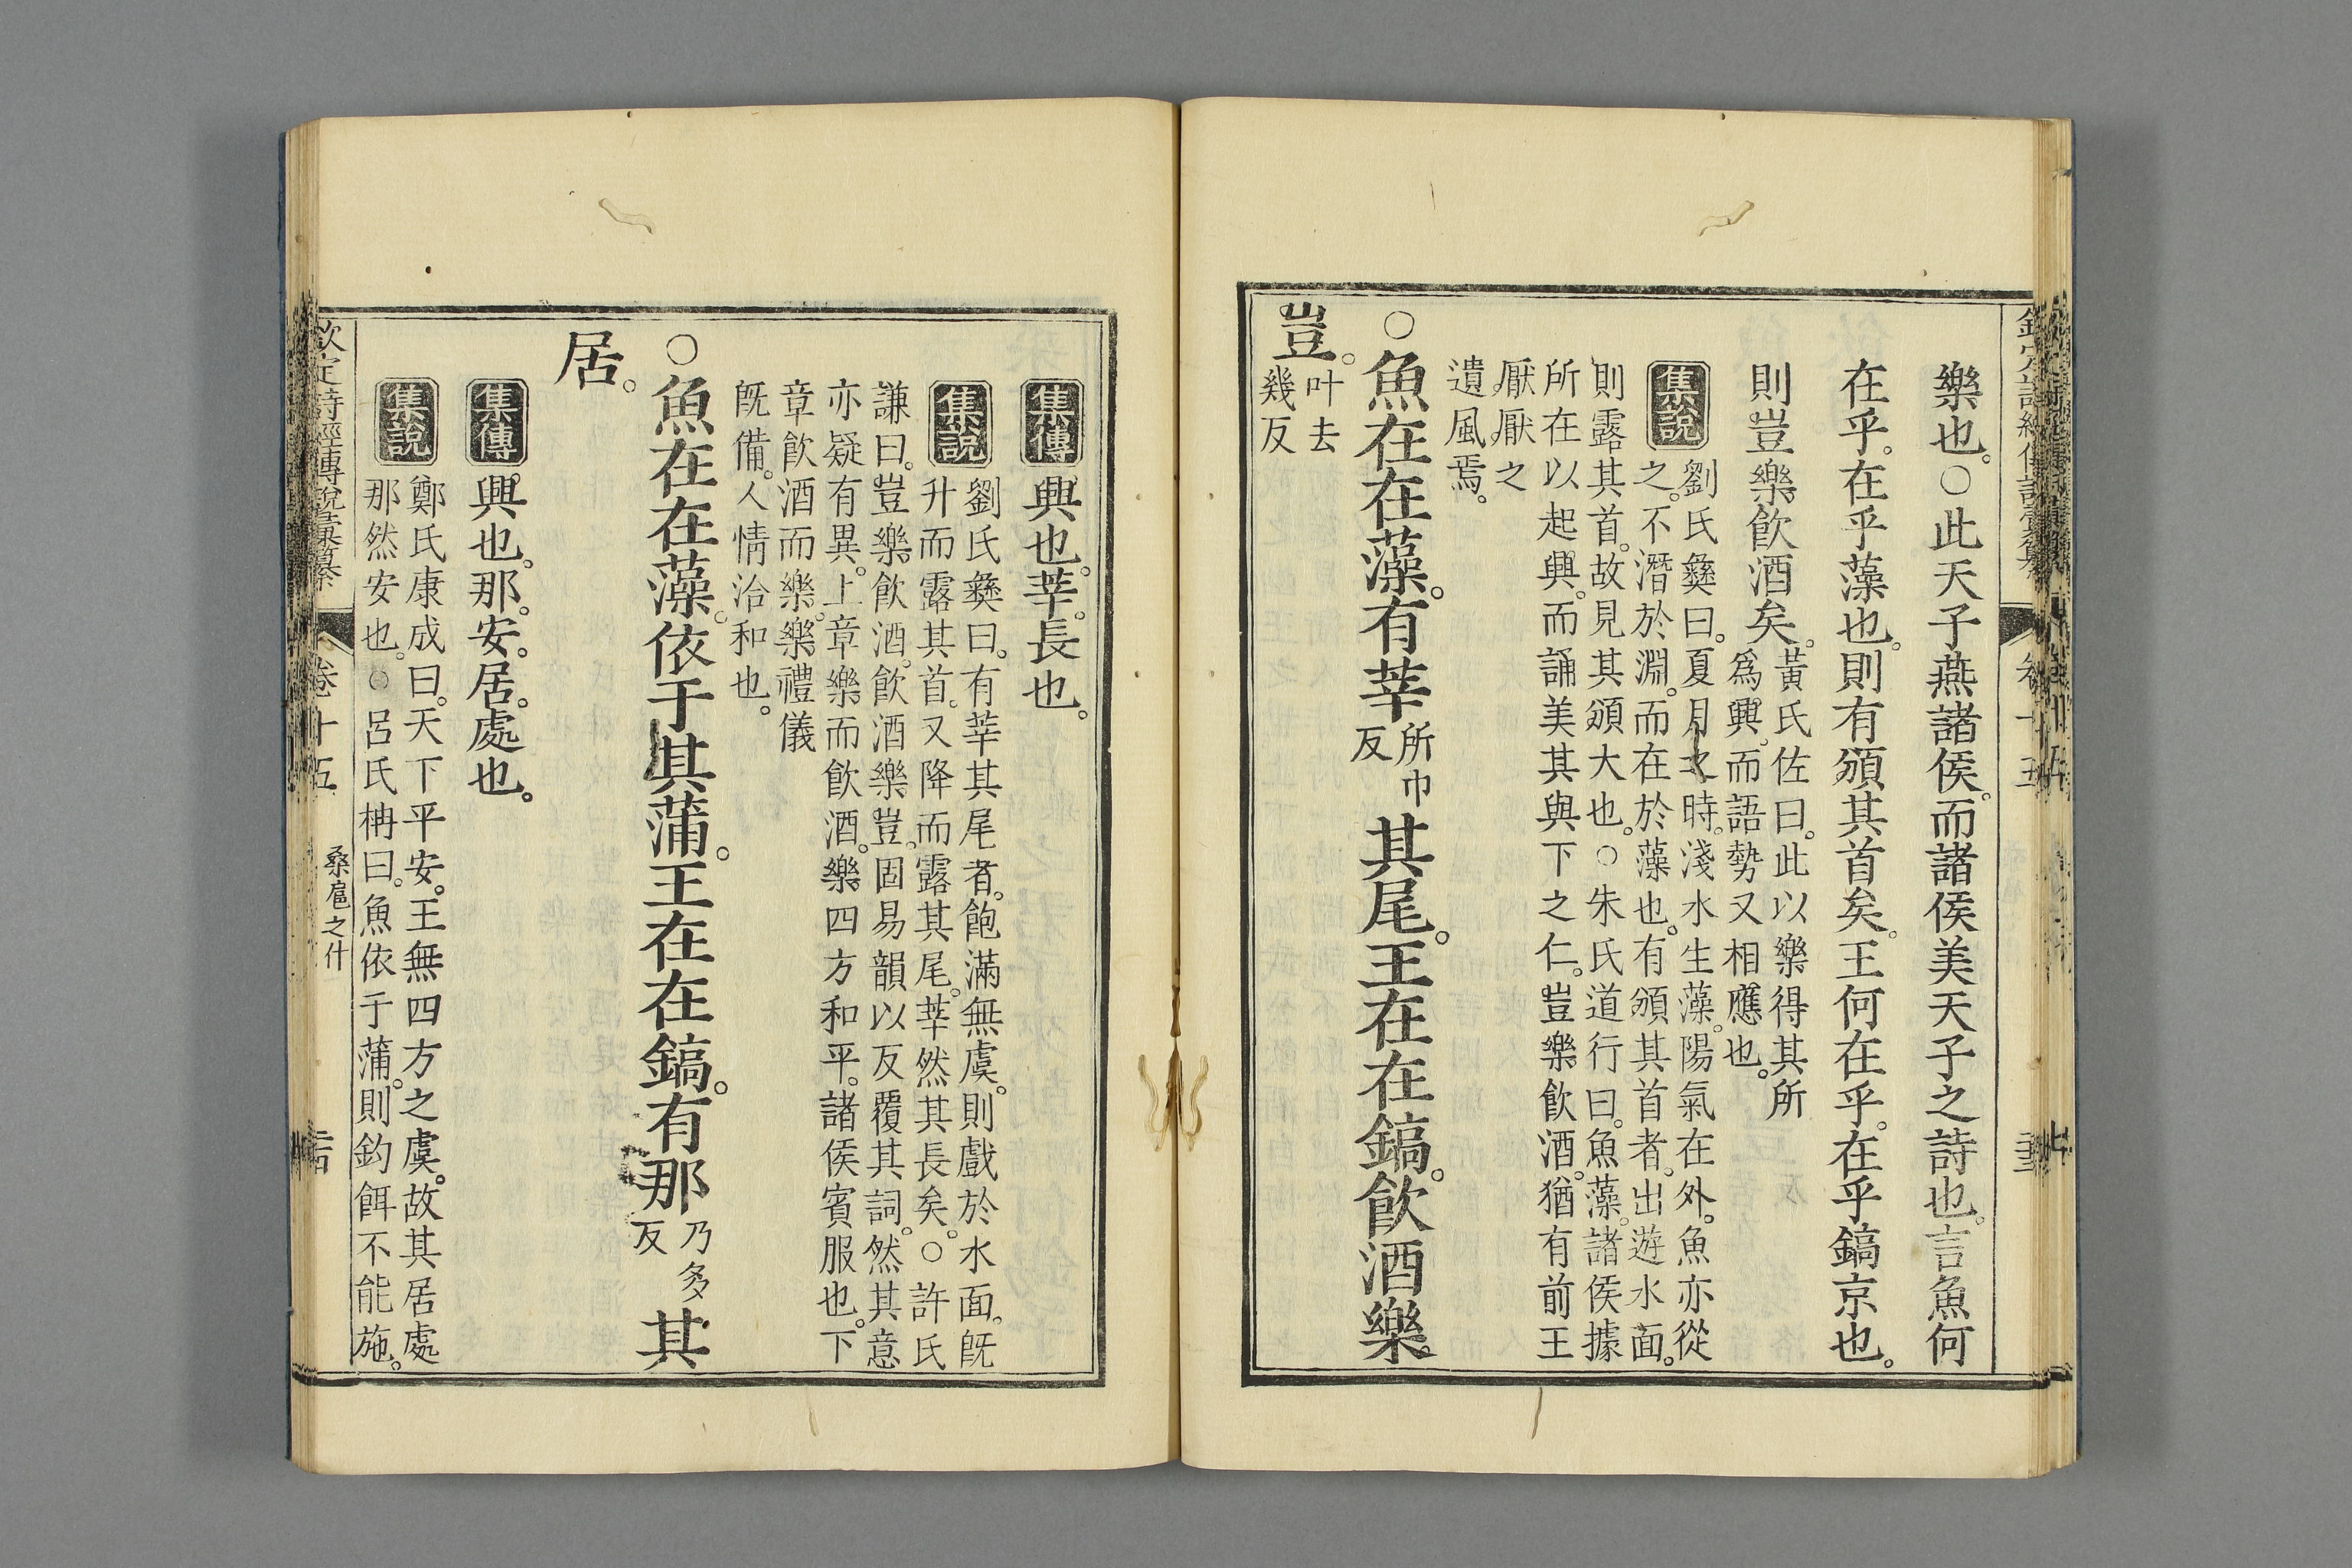 樂也。○此天子燕諸侯。而諸侯美天子之詩也。言魚何
在乎。在乎藻也。則有頒其首矣。王何在乎。在乎鎬京也。
則豈樂飲酒矣。
黃氏佐曰。此以樂得其所
爲興。而語勢又相應也。
集說
劉氏彝曰。夏月之時。淺水生藻。陽氣在外。魚亦從
之。不潛於淵。而在於藻也。有頒其首者。出遊水面。
則露其首。故見其頒大也。○朱氏道行曰。魚藻。諸侯據
所在以起興。而誦美其與下之仁。豈樂飲酒。猶有前王
厭厭之
遺風焉。
○魚在在藻。有莘
所巾
反
其尾。王在在鎬。飲酒樂。
豈。
叶去
幾反
集傳
興也。莘。長也。
集說
劉氏彝曰。有莘其尾者。飽滿無虞。則戲於水面。既
升而露其首。又降而露其尾。莘然其長矣。○許氏
謙曰。豈樂飲酒。飲酒樂豈。固易韻以反覆其詞。然其意
亦疑有異。上章樂而飲酒。樂四方和平。諸侯賓服也。下
章飲酒而樂。樂禮儀
既備。人情洽和也。
○魚在在藻。依于其蒲。王在在鎬。有那
乃多
反
其
居。
集傳
興也。那。安。居。處也。
集說
鄭氏康成曰。天下平安。王無四方之虞。故其居處
那然安也。○呂氏柟曰。魚依于蒲。則釣餌不能施。
欽定詩經傳說彙纂
卷十五
桑扈之什